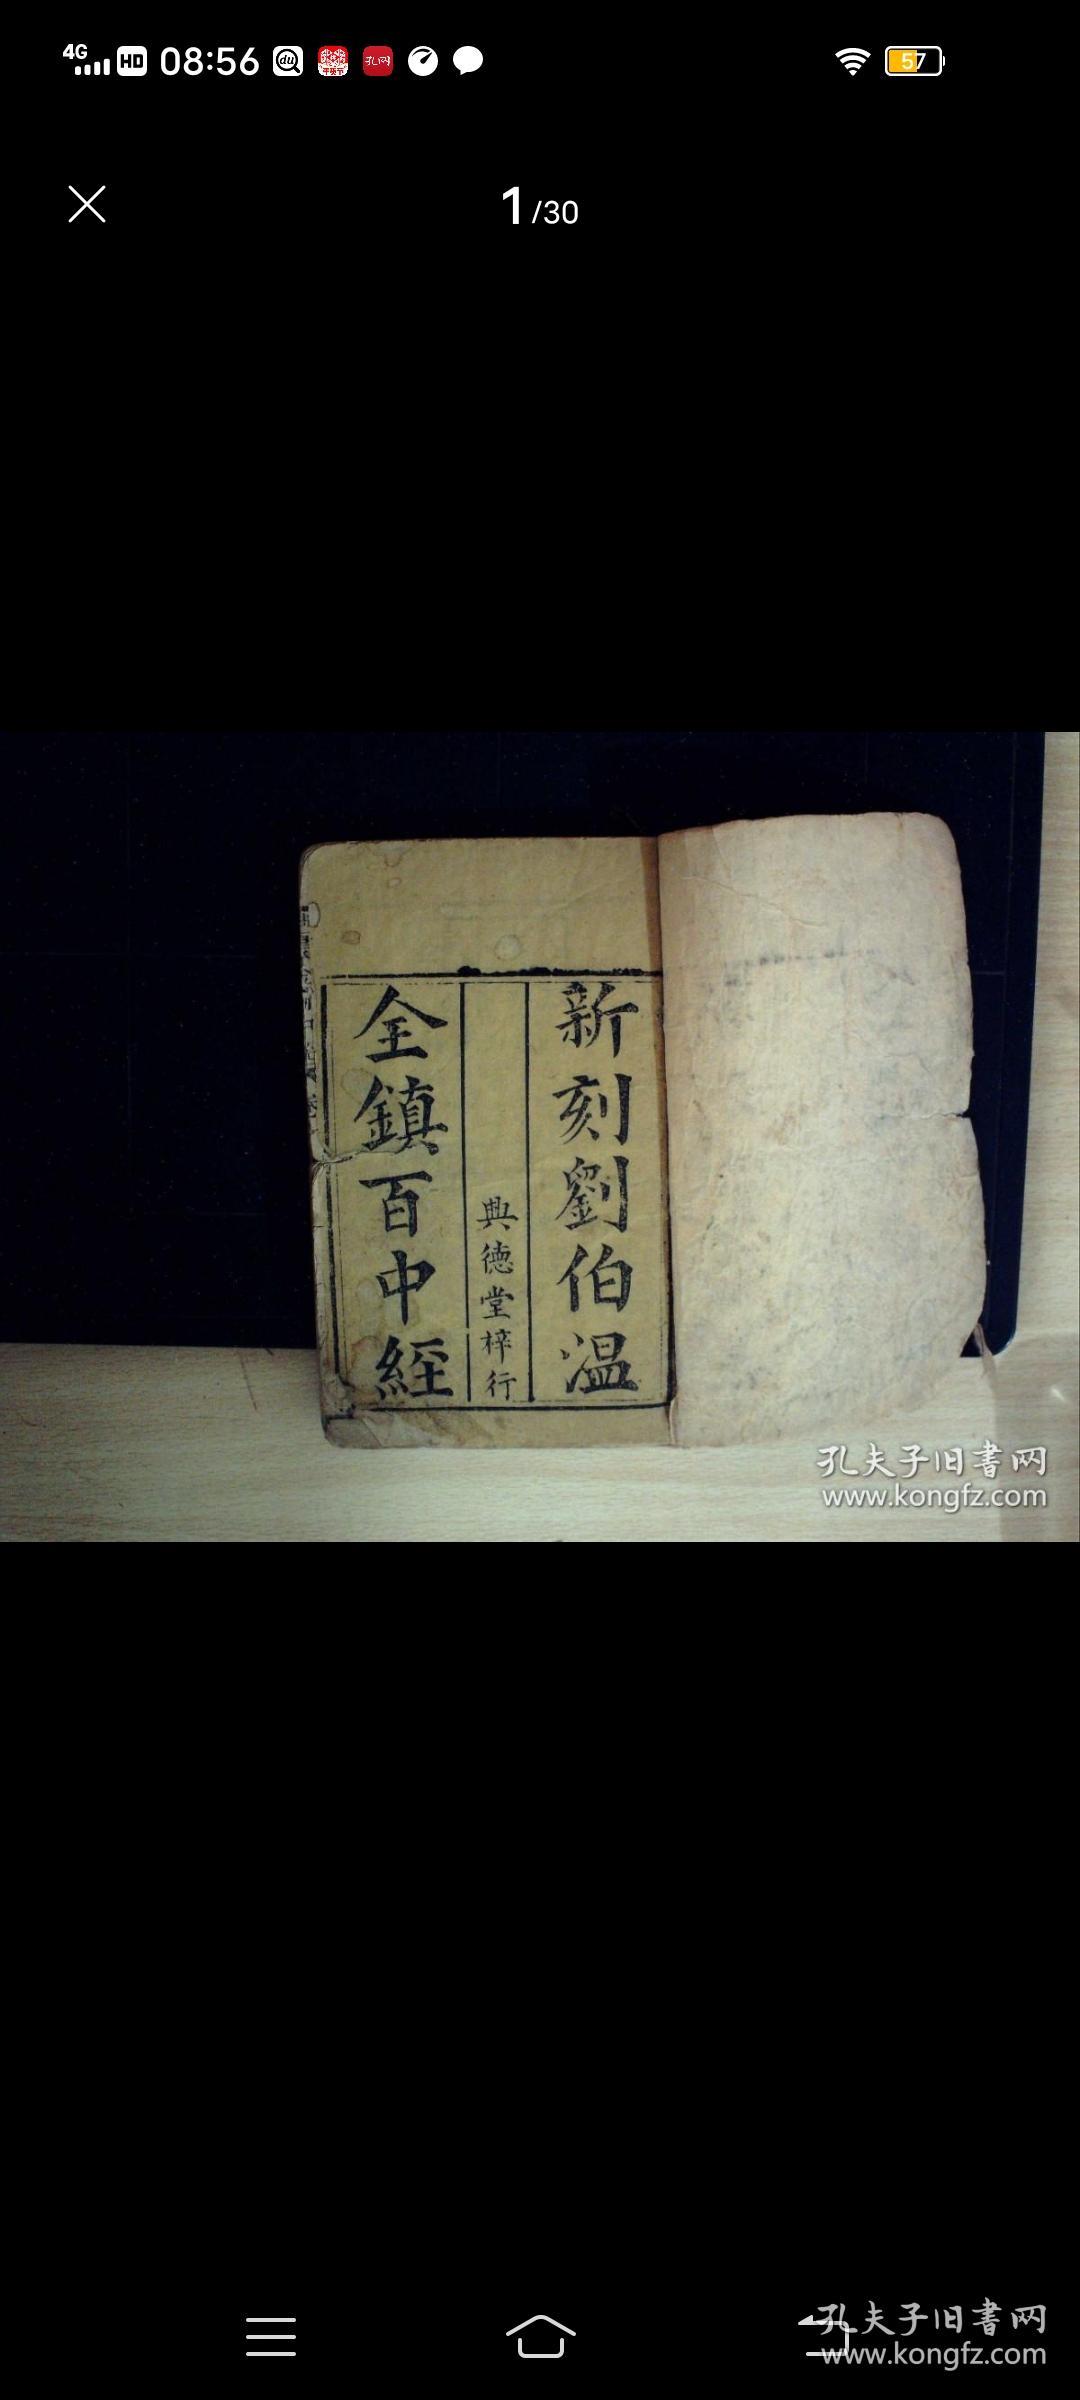 4G HD 08:56 du 孔网 57
1/30
新刻劉伯温
典德堂梓行
全鎮百中經
孔夫子旧書网
www.kongfz.com
孔夫子旧書网
www.kongfz.com